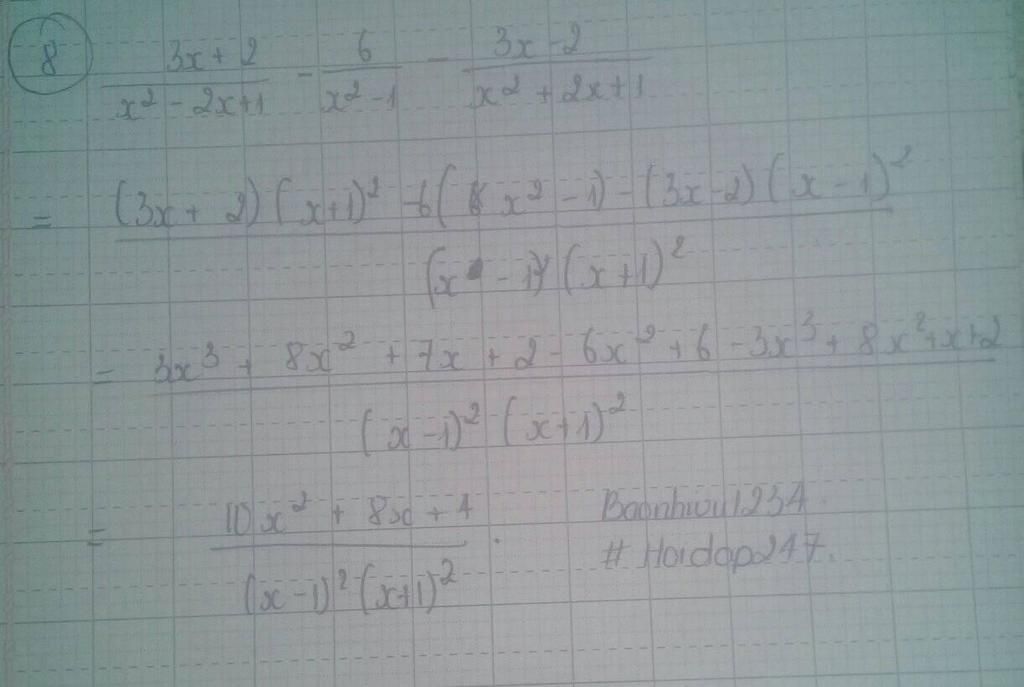 8 (3x + 2)/(x² - 2x + 1) - 6/(x² - 1) - (3x - 2)/(x² + 2x + 1)
= ((3x + 2)(x + 1)² - 6(x² - 1) - (3x - 2)(x - 1)²)/((x - 1)²(x + 1)²)
= (3x³ + 8x² + 7x + 2 - 6x² + 6 - 3x³ + 8x² + x + 2)/((x - 1)²(x + 1)²)
= (10x² + 8x + 4)/((x - 1)²(x + 1)²).
Baonhuu1234
# Hoidap247.